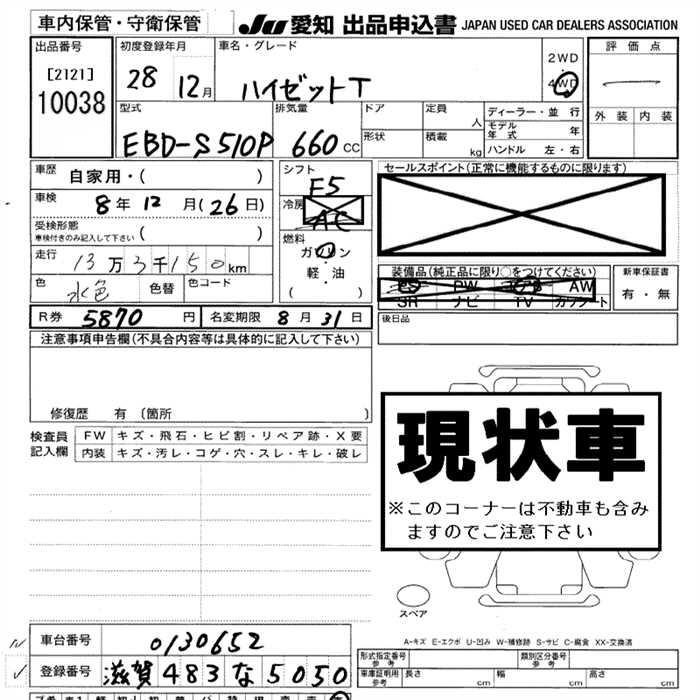 車内保管・守衛保管
JU 愛知 出品申込書 JAPAN USED CAR DEALERS ASSOCIATION
出品番号
[2121]
10038
初度登録年月
28 12月
車名・グレード
ハイゼットT
2WD
4WD
評価点
外装 内装
型式
EBD-S510P
排気量
660 CC
ドア
形状
定員
人
積載
kg
ディーラー・並行
モデル年式 年
ハンドル 左・右
車歴
自家用・( )
車検
8年 12月(26日)
受検形態
車検付きのみ記入して下さい ( )
走行
13万3千150km
色
水色
色替
色コード
シフト
F5
冷房
AC
燃料
ガソリン
軽・油
( )
セールスポイント(正常に機能するものに限ります)
装備品(純正品に限り○をつけてください)
PS PW エアB AW
SR ナビ TV カワシート
新車保証書
有・無
R券 5870円 名変期限 8月31日
後日品
注意事項申告欄(不具合内容等は具体的に記入して下さい)
修復歴 有 (箇所 )
検査員記入欄
FW キズ・飛石・ヒビ割・リペア跡・X要
内装 キズ・汚レ・コゲ・穴・スレ・キレ・破レ
現状車
※このコーナーは不動車も含み
ますのでご注意下さい
スペア
A-キズ E-エクボ U-凹み W-補修跡 S-サビ C-腐食 XX-交換済
車台番号 0130652
登録番号 滋賀 483 な 5050
形式指定番号 参考
類別区分番号 参考
車庫証明用 参考
長さ cm 幅 cm 高さ cm